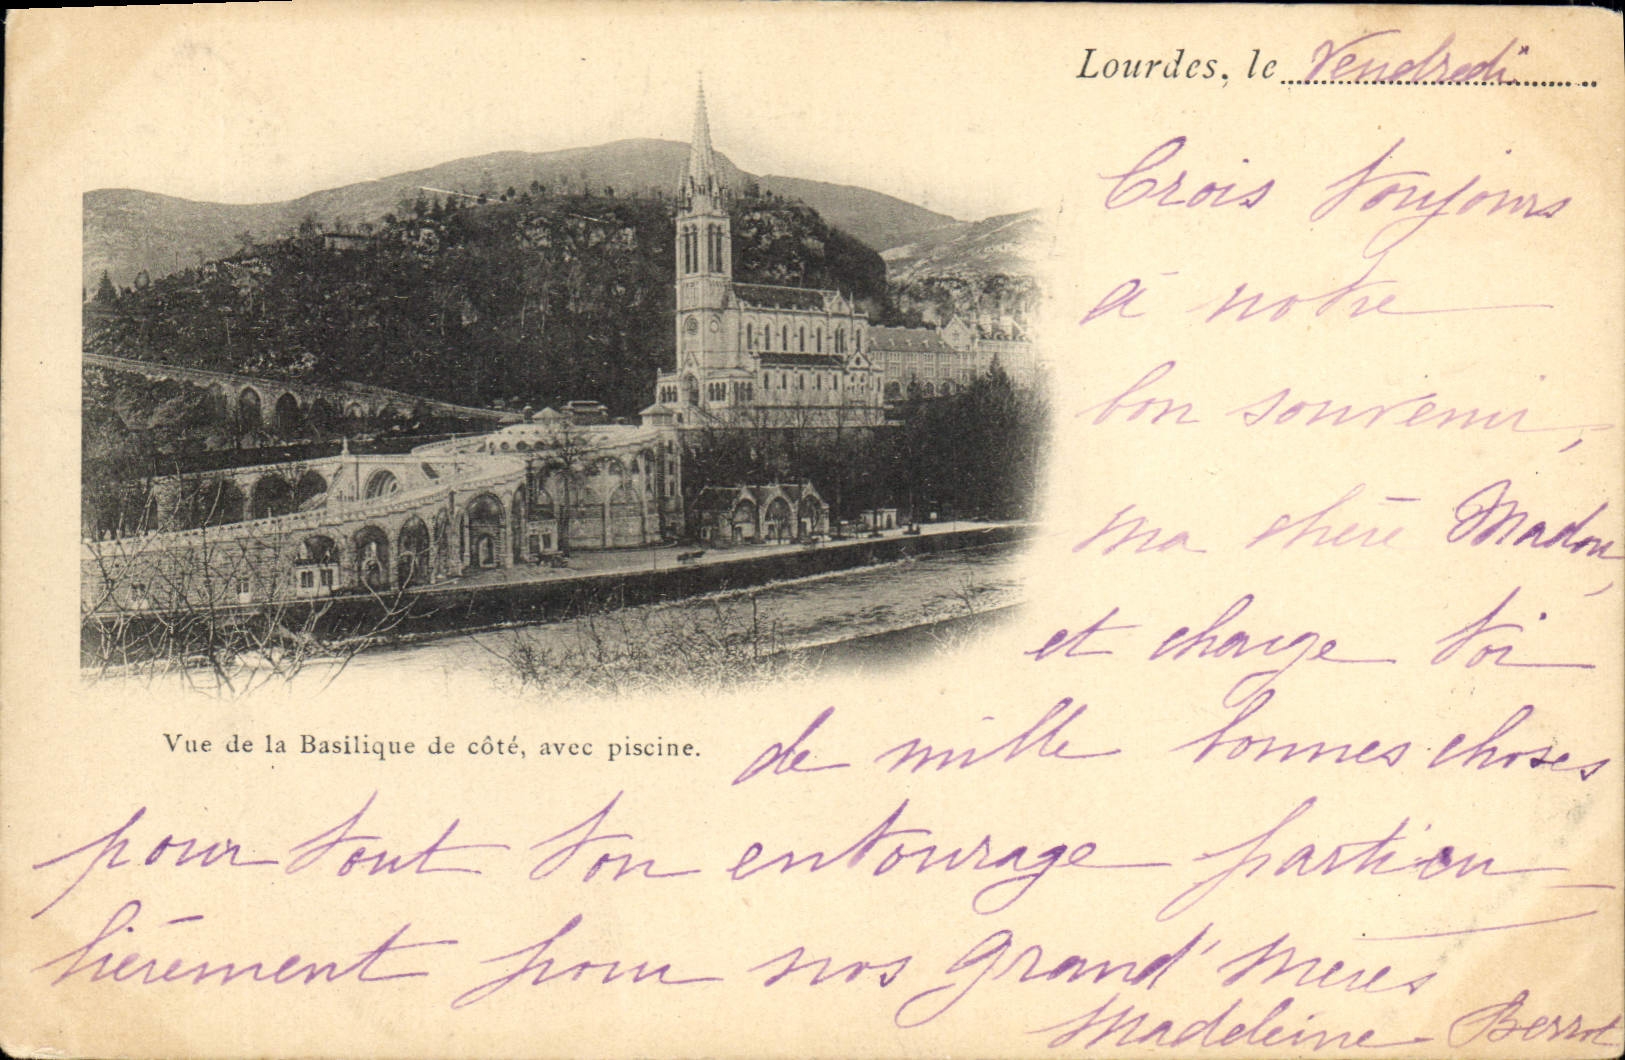 Lourdes, le Vendredi
Crois toujours
à notre
bon souvenir,
ma chère Madou,
et charge toi
Vue de la Basilique de côté, avec piscine.
de mille bonnes choses
pour tout ton entourage particu
lièrement pour nos grand' mères
Madeleine Berrot